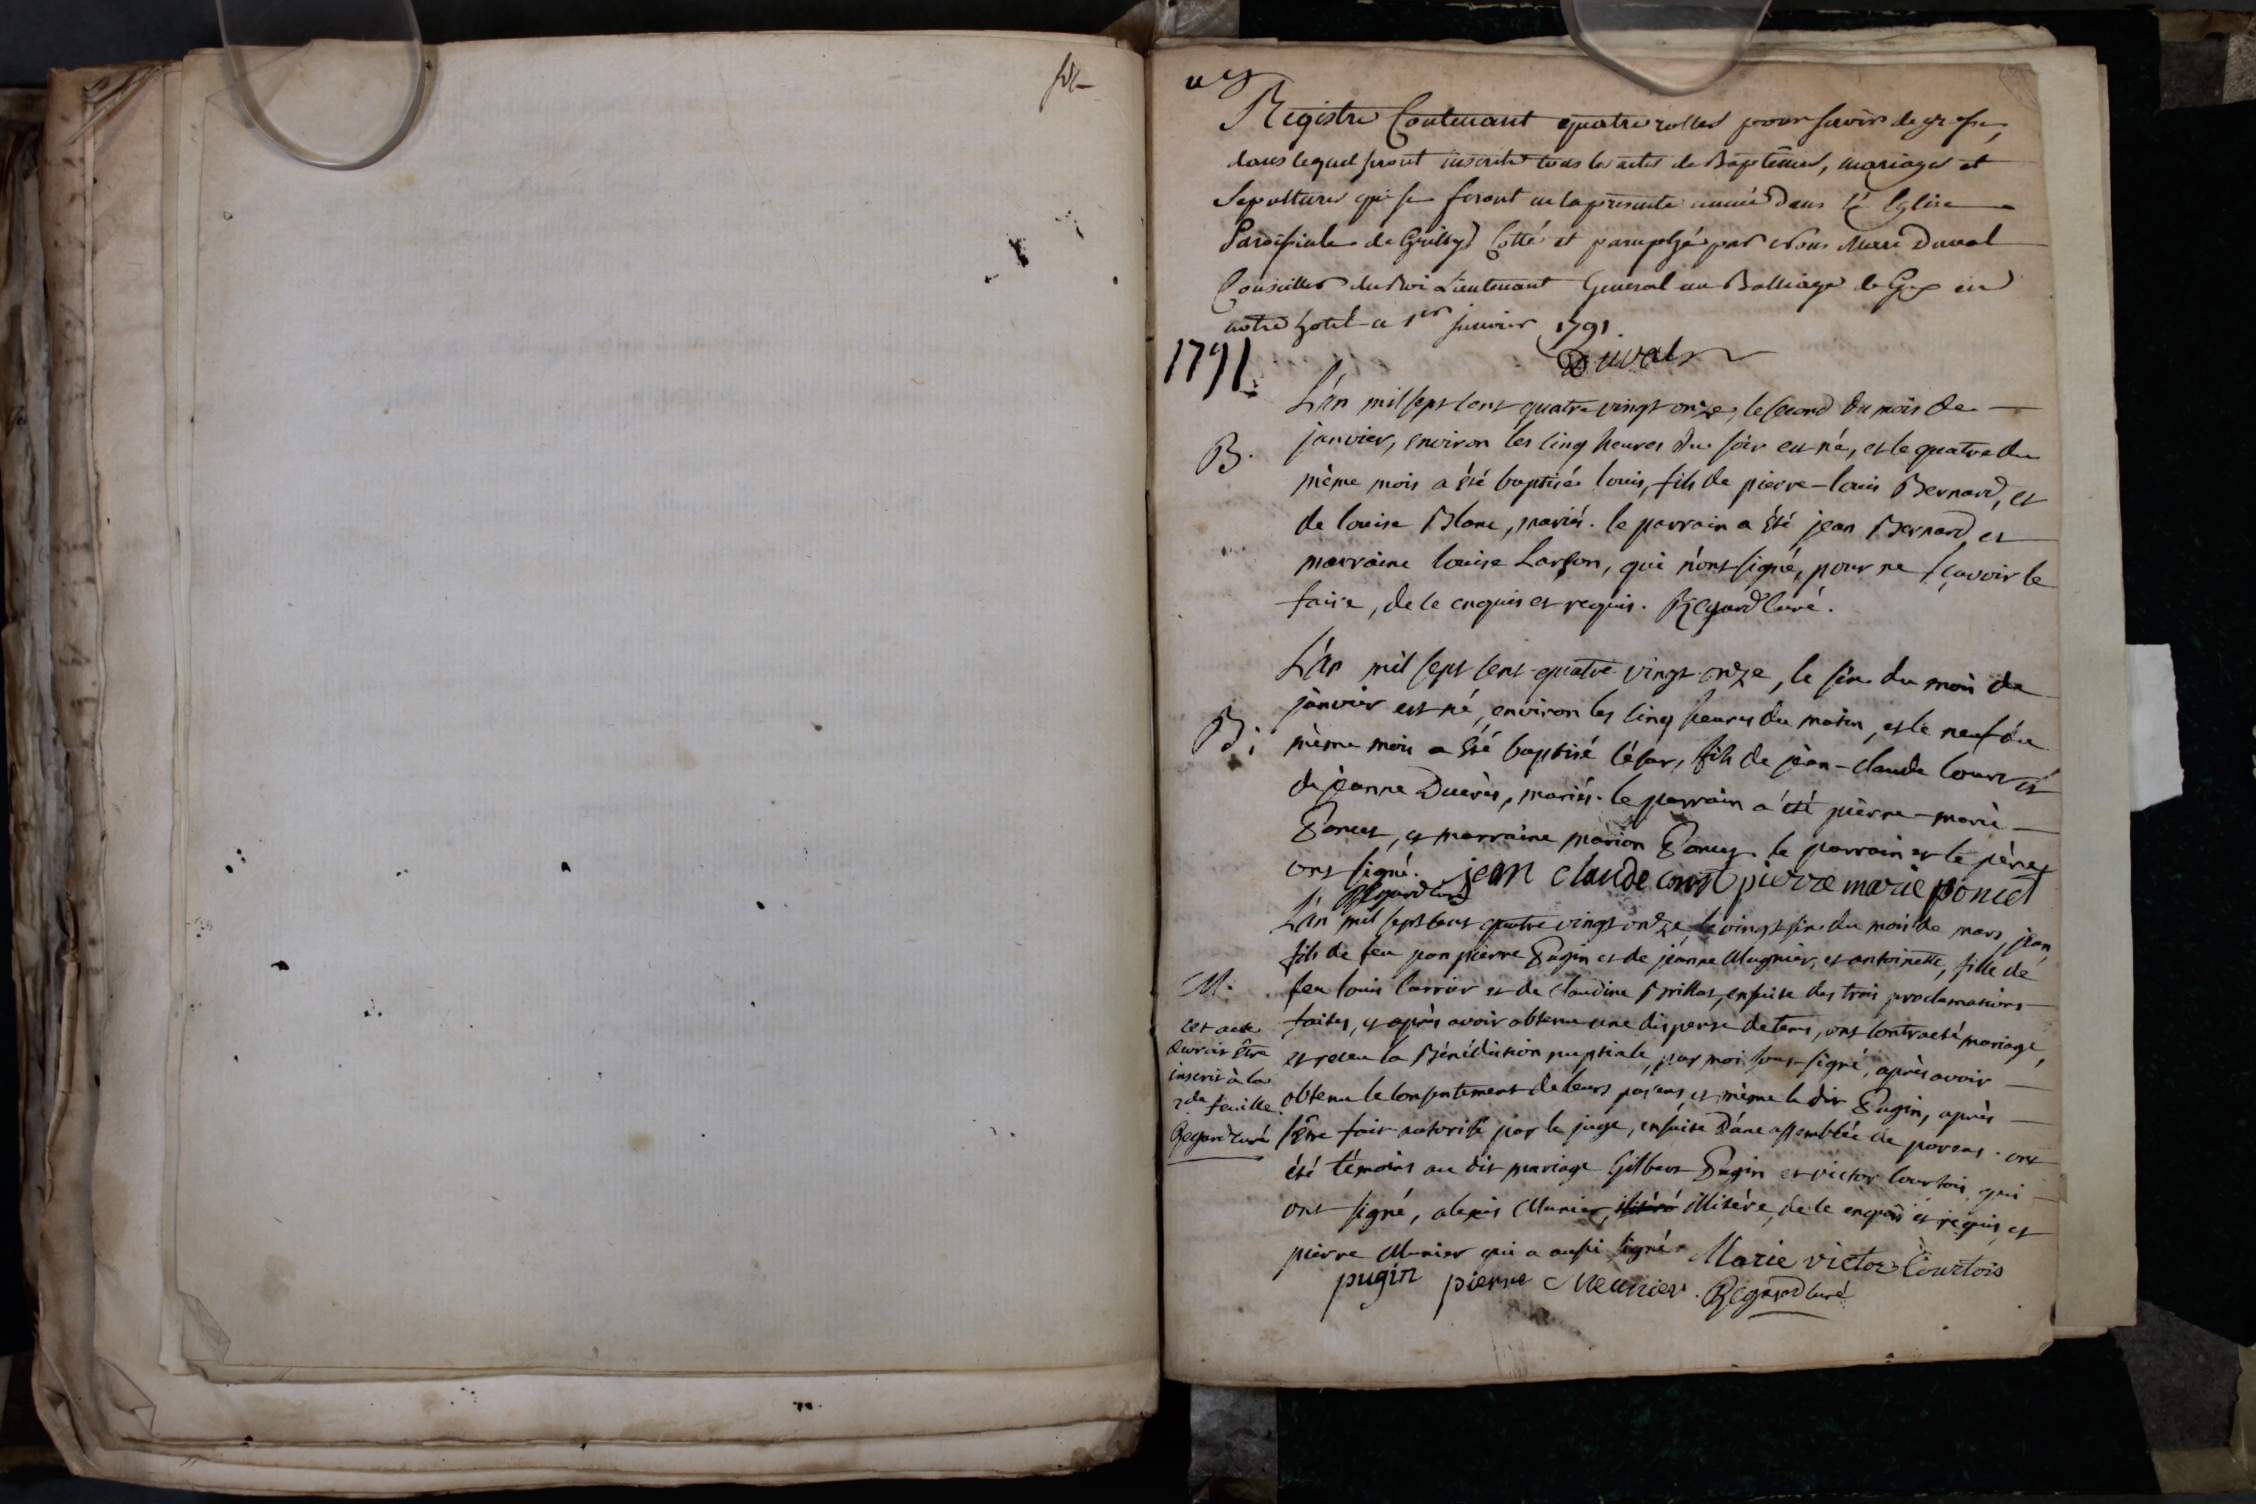 Registre Contenant quatre rolles pour servir de greffe,
dans lequel seront inscrits tous les actes de Baptêmes, mariages et
Sepultures qui se feront en la presente année dans l'Eglise
Paroissiale de Grilly, Cotté et paraphé par Nous Marc Duval
Conseiller du Roi Lieutenant General au Balliage de Gex en
notre hotel ce 1er janvier 1791.
Duval
1791.
L'an mil sept cent quatre vingt onze, le second du mois de
B.
janvier, environ les cinq heures du soir est né, et le quatre du
même mois a été baptisé louis, fils de pierre-louis Bernard, et
de louise Blanc, mariés. le parrain a été jean Bernard et
marraine louise Larçon, qui n'ont signé, pour ne sçavoir le
faire, de ce enquis et requis. Regard curé.
L'an mil sept cent quatre vingt onze, le six du mois de
janvier est né, environ les cinq heures du matin, et le neuf du
B.
même mois a été baptisé César, fils de jean-claude Court et
de jeanne, mariés. le parrain a été pierre-marie
Poncet, et marraine marion Poncet. le parrain et le père
ont signé. jean claude court pierre marie poncet
Regard curé
L'an mil sept cent quatre vingt onze, le vingt six du mois de mars, jean,
fils de feu jean pierre Pugin et de jeanne Mugnier, et antoinette, fille de
M.
feu louis Carrier et de claudine Brillat, ensuite des trois proclamations
faites, et après avoir obtenu une dispense de tems, ont contracté mariage,
et receu la Bénédiction nuptiale, par moi sous-signé, après avoir
obtenu le consentement de leurs parens, et même le dit Pugin, après
s'être fait autorisé par le juge, ensuite d'une assemblée de parens. ont
été témoins au dit mariage Gilbert Pugin et victor Courtois, qui
ont signé, alexis Munier, illitéré, de ce enquis et requis, et
pierre Munier qui a aussi signé. Marie victor Courtois
pugin pierre Meunier. Regard curé
cet acte
devroit être
inscrit à la
2de feuille.
Regard curé